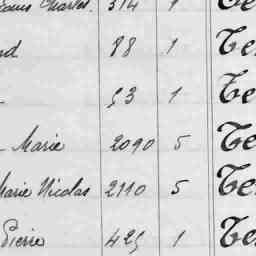 Louis Charles. 314 1 Te
rd 88 1 Te
53 1 Te
Marie 2090 5 Te
Marie Nicolas 2110 5 Te
Pierre 425 1 Te